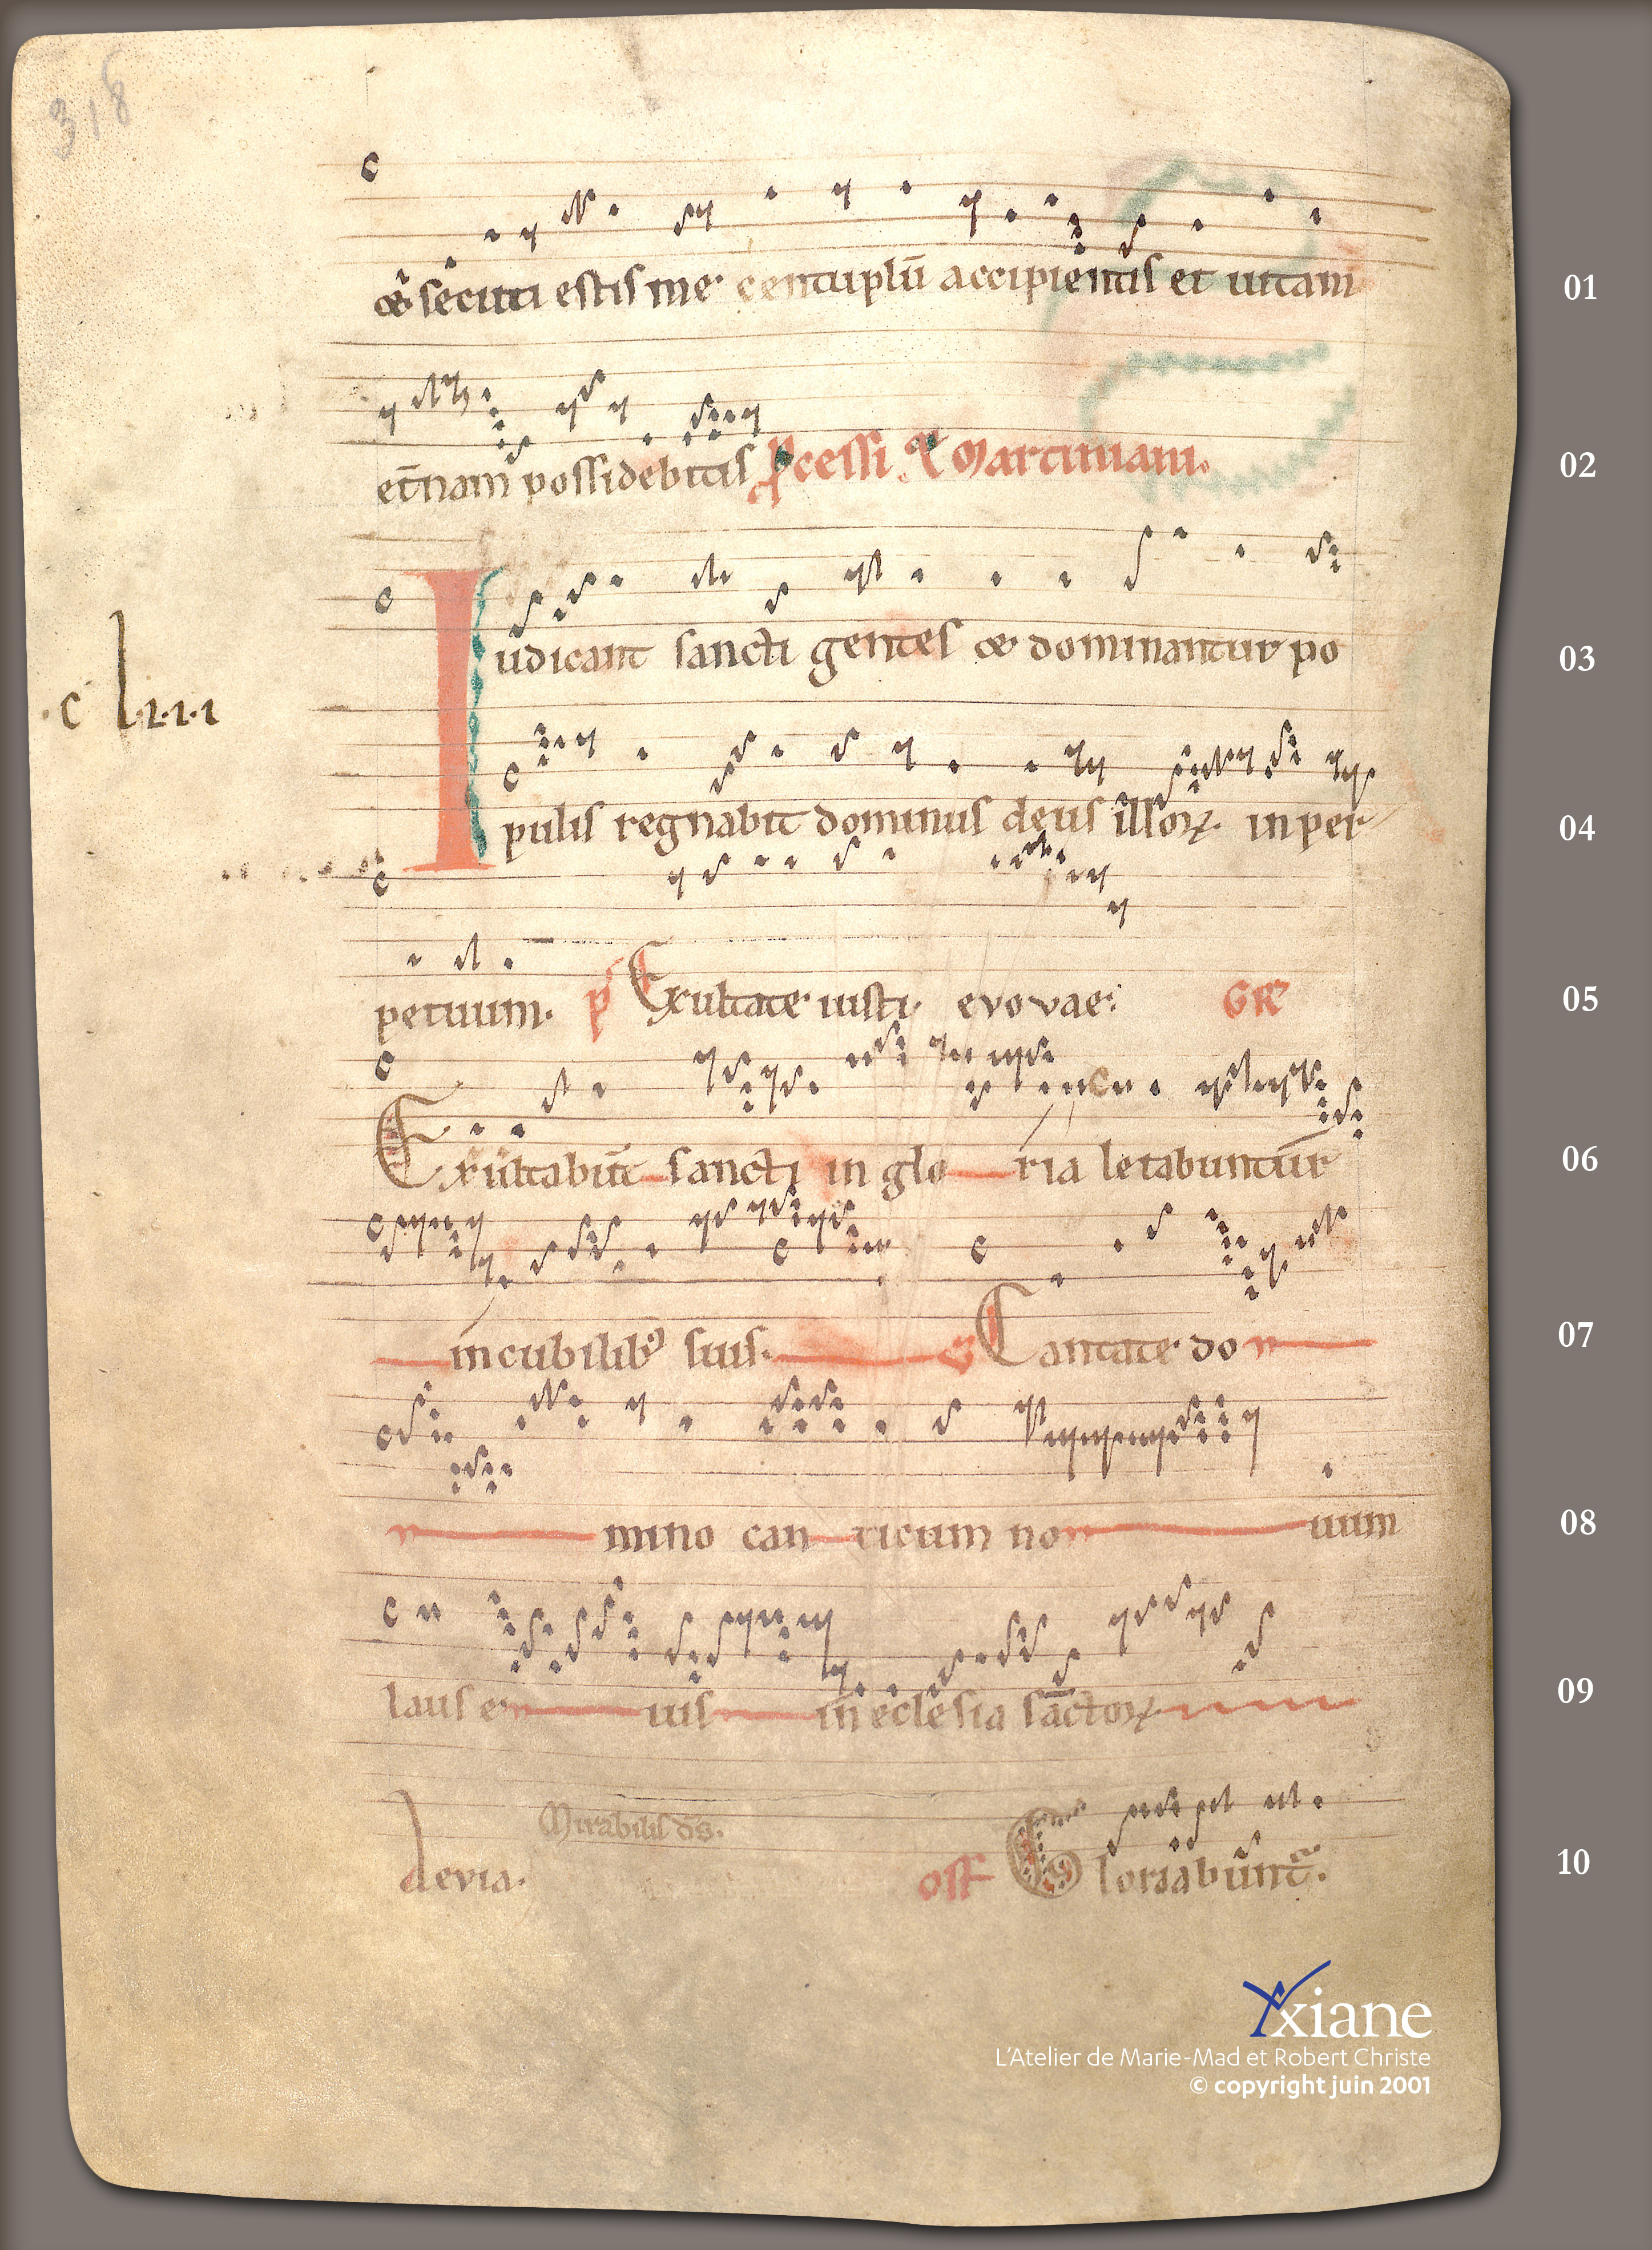 318
& secuti estis me centuplū accipientis et uitam 01
et̄nam possidebitis P̲cessi & Martiniani. 02
Iudicant sancti gentes & dominantur po 03
.c l.1.1.1
pulis regnabit dominus deus illoꝝ. in per 04
petuum. p̄ Exultate iusti. evovae. GR 05
Exultabūt sancti in glo ria letabuntur 06
in cubilibꝰ suis. ℣ Cantate do 07
mino can ticum no uum 08
laus e ius in eclesia sāctoꝝ 09
Mirabilis d̄s.
alevia. off Gloriabūnt̄. 10
Xxiane
L'Atelier de Marie-Mad et Robert Christe
© copyright juin 2001